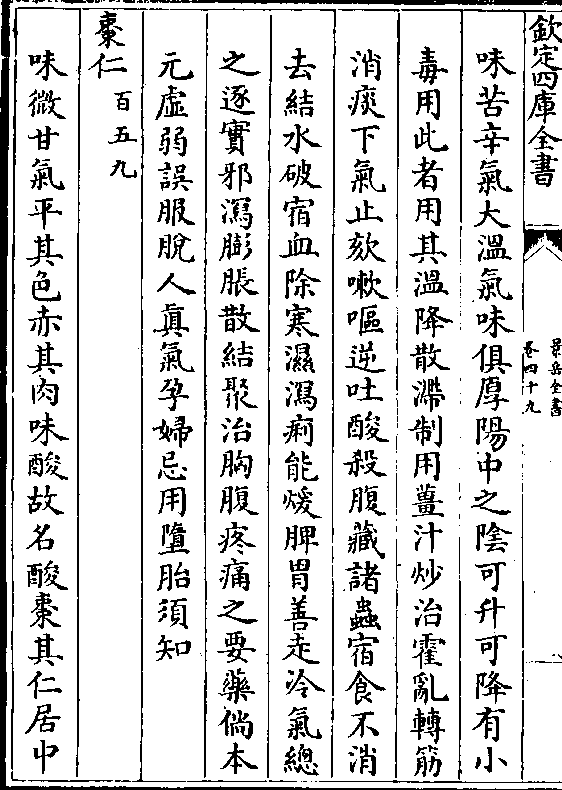 欽定四庫全書
景岳全書
卷四十九
味苦辛氣大溫氣味俱厚陽中之陰可升可降有小
毒用此者用其溫降散滯制用薑汁炒治霍亂轉筋
消痰下氣止欬嗽嘔逆吐酸殺腹藏諸蟲宿食不消
去結水破宿血除寒濕瀉痢能煖脾胃善走冷氣總
之逐實邪瀉膨脹散結聚治胸腹疼痛之要藥倘本
元虛弱誤服脫人真氣孕婦忌用墮胎須知
棗仁 百五九
味微甘氣平其色赤其肉味酸故名酸棗其仁居中